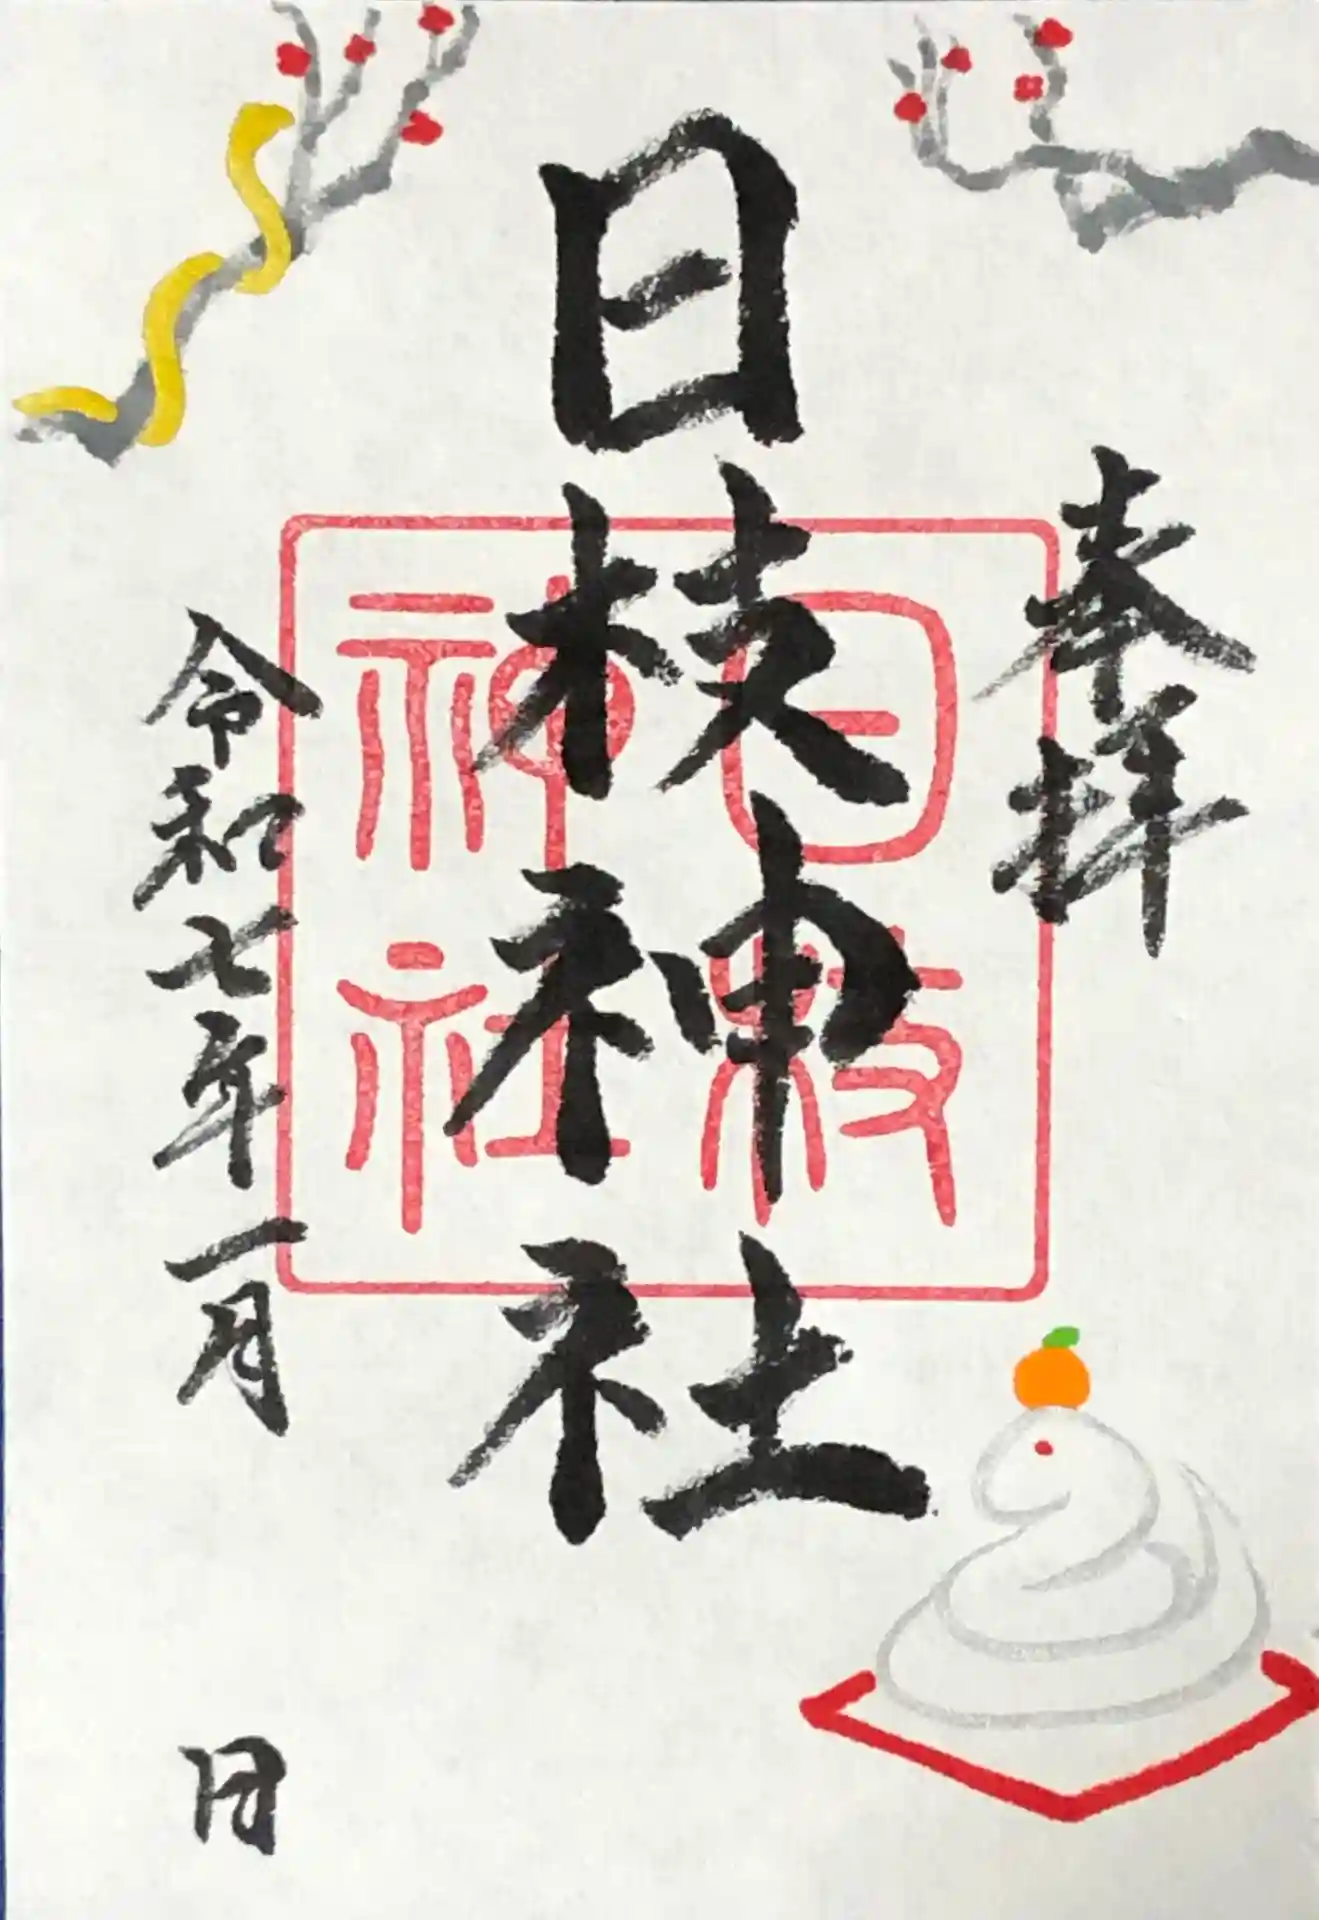 奉拝
日枝神社
日枝
神社
令和七年一月 日